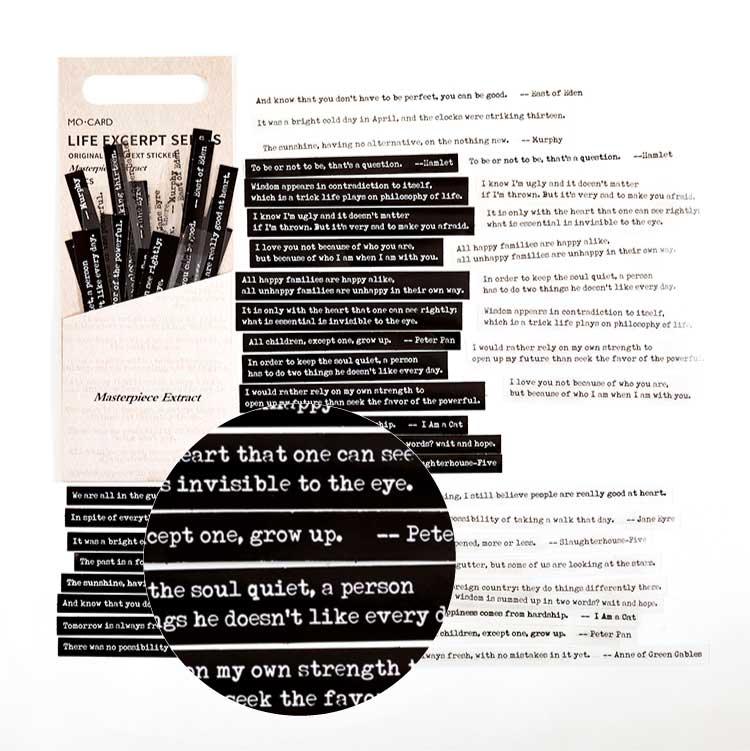 MO·CARD
LIFE EXCERPT SE
ORIGINAL EXT STICKER
Masterpiece Extract
-- Murphy
king thirten.
East of Eden
are really good at heart.
Masterpiece Extract
And know that you don't have to be perfect, you can be good. -- East of Eden
It was a bright cold day in April, and the clocks were striking thirteen.
The sunshine, having no alternative, on the nothing new. -- Murphy
To be or not to be, that's a question. --Hamlet
To be or not to be, that's a question. --Hamlet
Wisdom appears in contradiction to itself,
which is a trick life plays on philosophy of life.
I know I'm ugly and it doesn't matter
if I'm thrown. But it's very sad to make you afraid.
I know I'm ugly and it doesn't matter
if I'm thrown. But it's very sad to make you afraid.
It is only with the heart that one can see rightly;
what is essential is invisible to the eye.
I love you not because of who you are,
but because of who I am when I am with you.
All happy families are happy alike,
all unhappy families are unhappy in their own way.
All happy families are happy alike,
all unhappy families are unhappy in their own way.
In order to keep the soul quiet, a person
has to do two things he doesn't like every day.
It is only with the heart that one can see rightly;
what is essential is invisible to the eye.
Wisdom appears in contradiction to itself,
which is a trick life plays on philosophy of life.
All children, except one, grow up. -- Peter Pan
I would rather rely on my own strength to
open up my future than seek the favor of the powerful.
In order to keep the soul quiet, a person
has to do two things he doesn't like every day.
I would rather rely on my own strength to
open up my future than seek the favor of the powerful.
I love you not because of who you are,
but because of who I am when I am with you.
ship. -- I Am a Cat
words? wait and hope.
ughterhouse-Five
eart that one can see
s invisible to the eye.
cept one, grow up. -- Pete
the soul quiet, a person
gs he doesn't like every d
n my own strength t
seek the favo
We are all in the gu
In spite of everyt
It was a bright c
The past is a fo
The sunshine, hav
And know that you do
Tomorrow is always fr
There was no possibility
ing, I still believe people are really good at heart.
possibility of taking a walk that day. -- Jane Eyre
pened, more or less. -- Slaughterhouse-Five
gutter, but some of us are looking at the stars.
reign country: they do things differently there.
wisdom is summed up in two words? wait and hope.
ppiness comes from hardship. -- I Am a Cat
children, except one, grow up. -- Peter Pan
ways fresh, with no mistakes in it yet. -- Anne of Green Gables